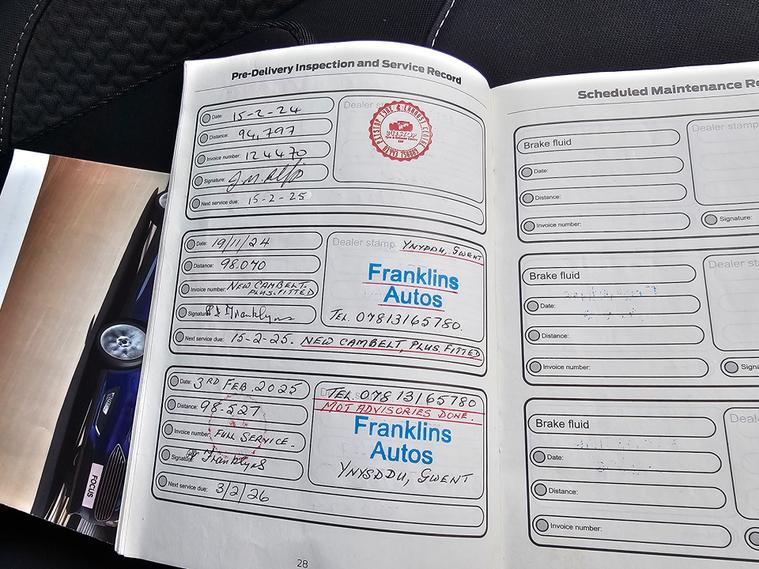 Pre-Delivery Inspection and Service Record
Date: 15-2-24
Distance: 94,797
Invoice number: 124470
Signature:
Next service due: 15-2-25
Dealer stamp
Date: 19/11/24
Distance: 98.070
Invoice number: NEW CAMBELT. PLUS. FITTED
Signature: Franklyns
Next service due: 15-2-25. NEW CAMBELT, PLUS. FITTED
Dealer stamp YNYDDU, GWENT
Franklins
Autos
TEL. 07813165780.
Date: 3RD FEB. 2025
Distance: 98-527
Invoice number: FULL SERVICE.
Signature: Franklyns
Next service due: 3/2/26
TEL. 078 13165780
MOT ADVISORIES DONE.
Franklins
Autos
YNYSDDU, GWENT
28
FOCUS
Scheduled Maintenance Re
Brake fluid
Date:
Distance:
Invoice number:
Dealer stamp
Signature:
Brake fluid
Date:
Distance:
Invoice number:
Dealer sta
Signa
Brake fluid
Date:
Distance:
Invoice number:
Deal